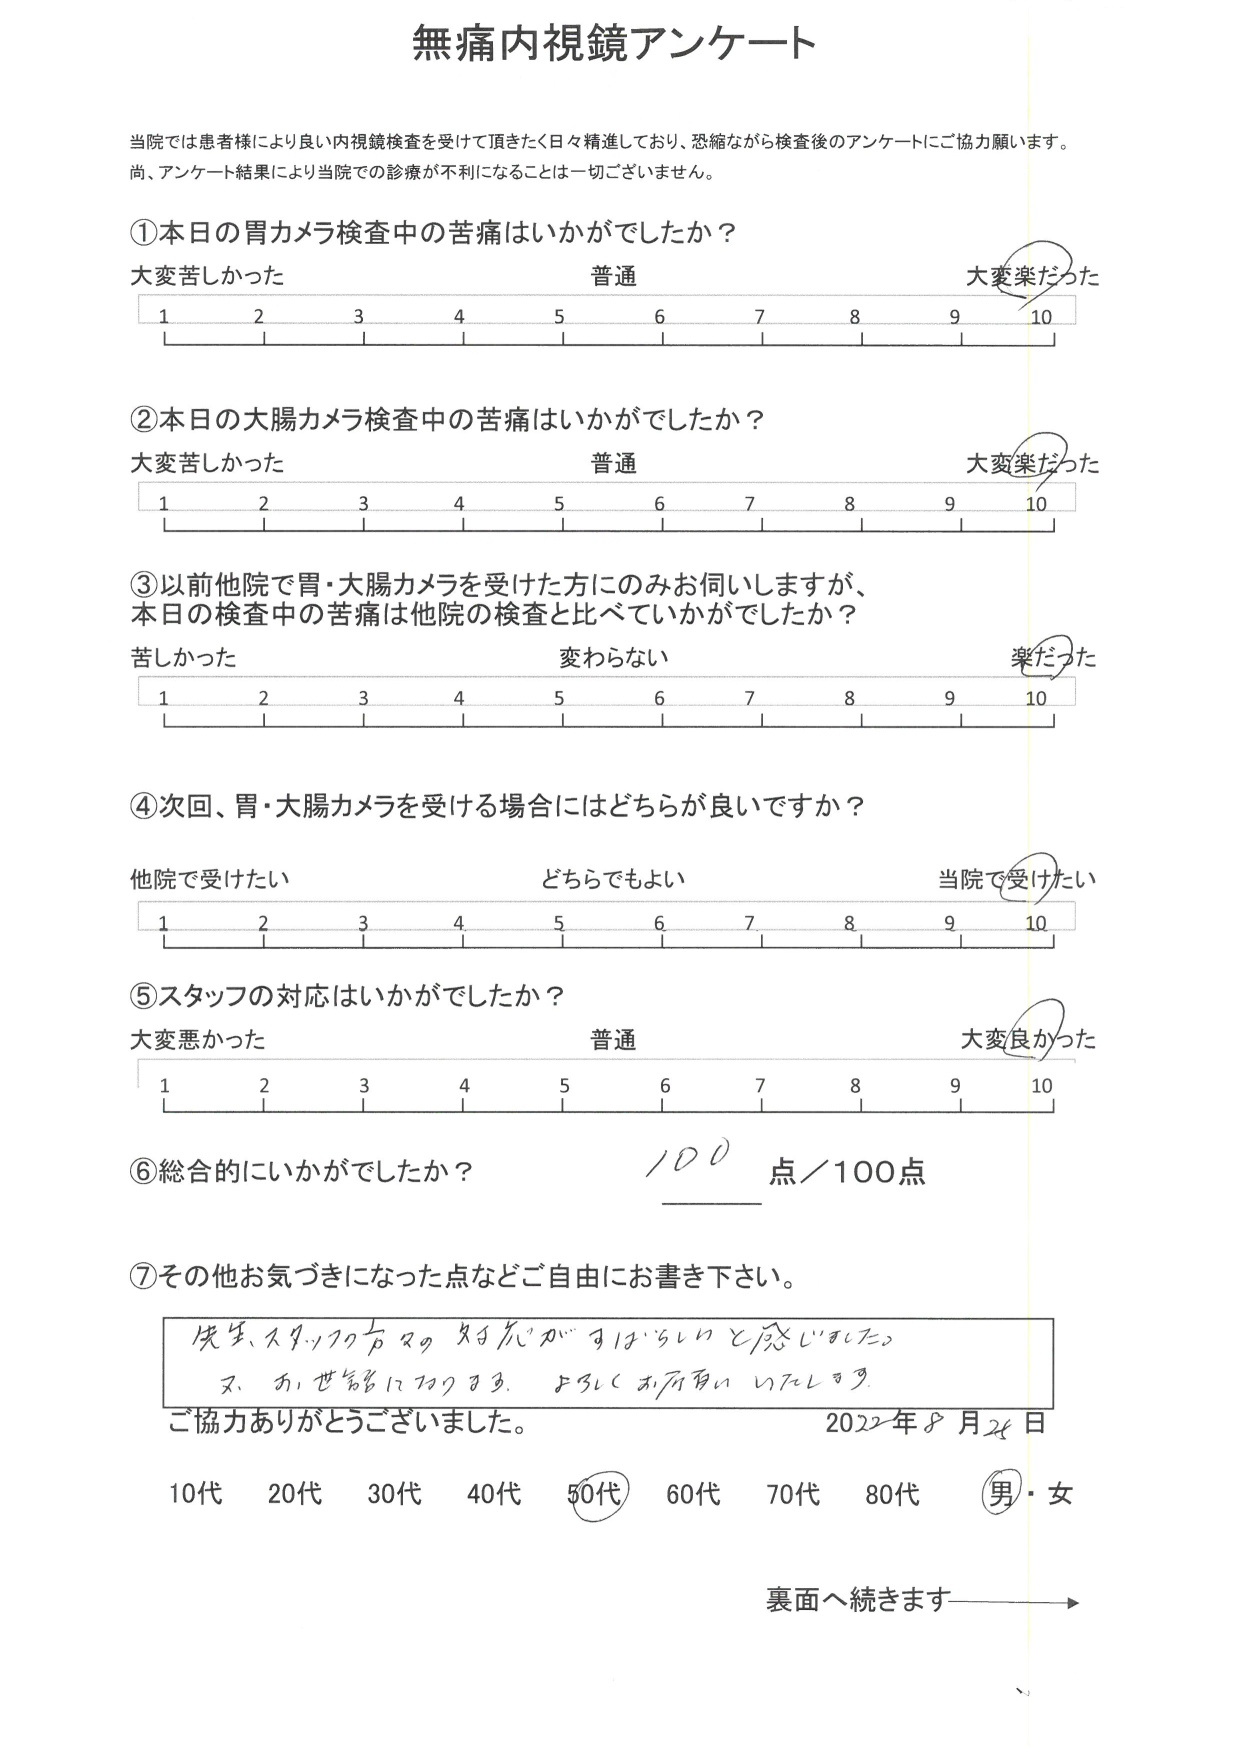 無痛内視鏡アンケート
当院では患者様により良い内視鏡検査を受けて頂きたく日々精進しており、恐縮ながら検査後のアンケートにご協力願います。
尚、アンケート結果により当院での診療が不利になることは一切ございません。
①本日の胃カメラ検査中の苦痛はいかがでしたか？
大変苦しかった 普通 大変楽だった
1 2 3 4 5 6 7 8 9 10
②本日の大腸カメラ検査中の苦痛はいかがでしたか？
大変苦しかった 普通 大変楽だった
1 2 3 4 5 6 7 8 9 10
③以前他院で胃・大腸カメラを受けた方にのみお伺いしますが、
本日の検査中の苦痛は他院の検査と比べていかがでしたか？
苦しかった 変わらない 楽だった
1 2 3 4 5 6 7 8 9 10
④次回、胃・大腸カメラを受ける場合にはどちらが良いですか？
他院で受けたい どちらでもよい 当院で受けたい
1 2 3 4 5 6 7 8 9 10
⑤スタッフの対応はいかがでしたか？
大変悪かった 普通 大変良かった
1 2 3 4 5 6 7 8 9 10
⑥総合的にいかがでしたか？ 100 点／100点
⑦その他お気づきになった点などご自由にお書き下さい。
先生、スタッフの方々の対応がすばらしいと感じました。
又、お世話になります。よろしくお願いいたします。
ご協力ありがとうございました。 2022年8月 日
10代 20代 30代 40代 50代 60代 70代 80代 男・女
裏面へ続きます